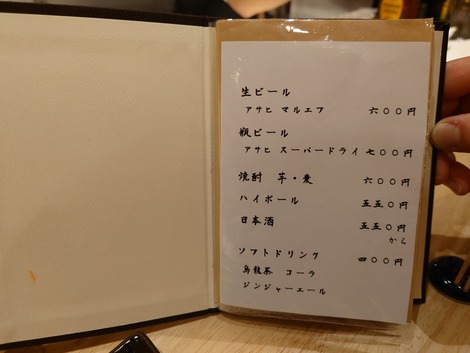 生ビール
アサヒ マルエフ 六〇〇円
瓶ビール
アサヒ スーパードライ 七〇〇円
焼酎 芋・麦 六〇〇円
ハイボール 五五〇円
日本酒 五五〇円
から
ソフトドリンク 四〇〇円
烏龍茶 コーラ
ジンジャーエール